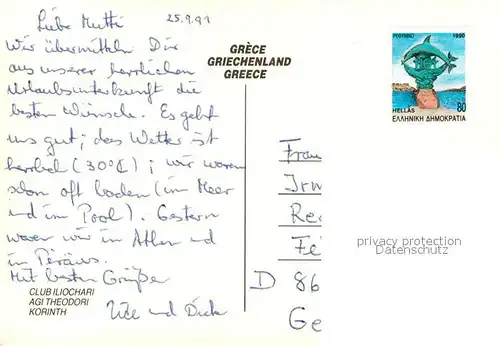 Liebe Mutti 25.9.91
Wir übermitteln Dir
aus unserer herrlichen
Urlaubsunterkunft die
besten Wünsche. Es geht
uns gut; das Wetter ist
herrlich (30°C); wir waren
schon oft baden (im Meer
und im Pool). Gestern
waren wir in Athen und
in Piräus.
Mit besten Grüßen
und Dick
CLUB ILIOCHARI
AGI THEODORI
KORINTH
GRÈCE
GRIECHENLAND
GREECE
1990
80
HELLAS
ΕΛΛΗΝΙΚΗ ΔΗΜΟΚΡΑΤΙΑ
Frau
Irm
Re
Fe
D 86
Ge
privacy protection
Datenschutz